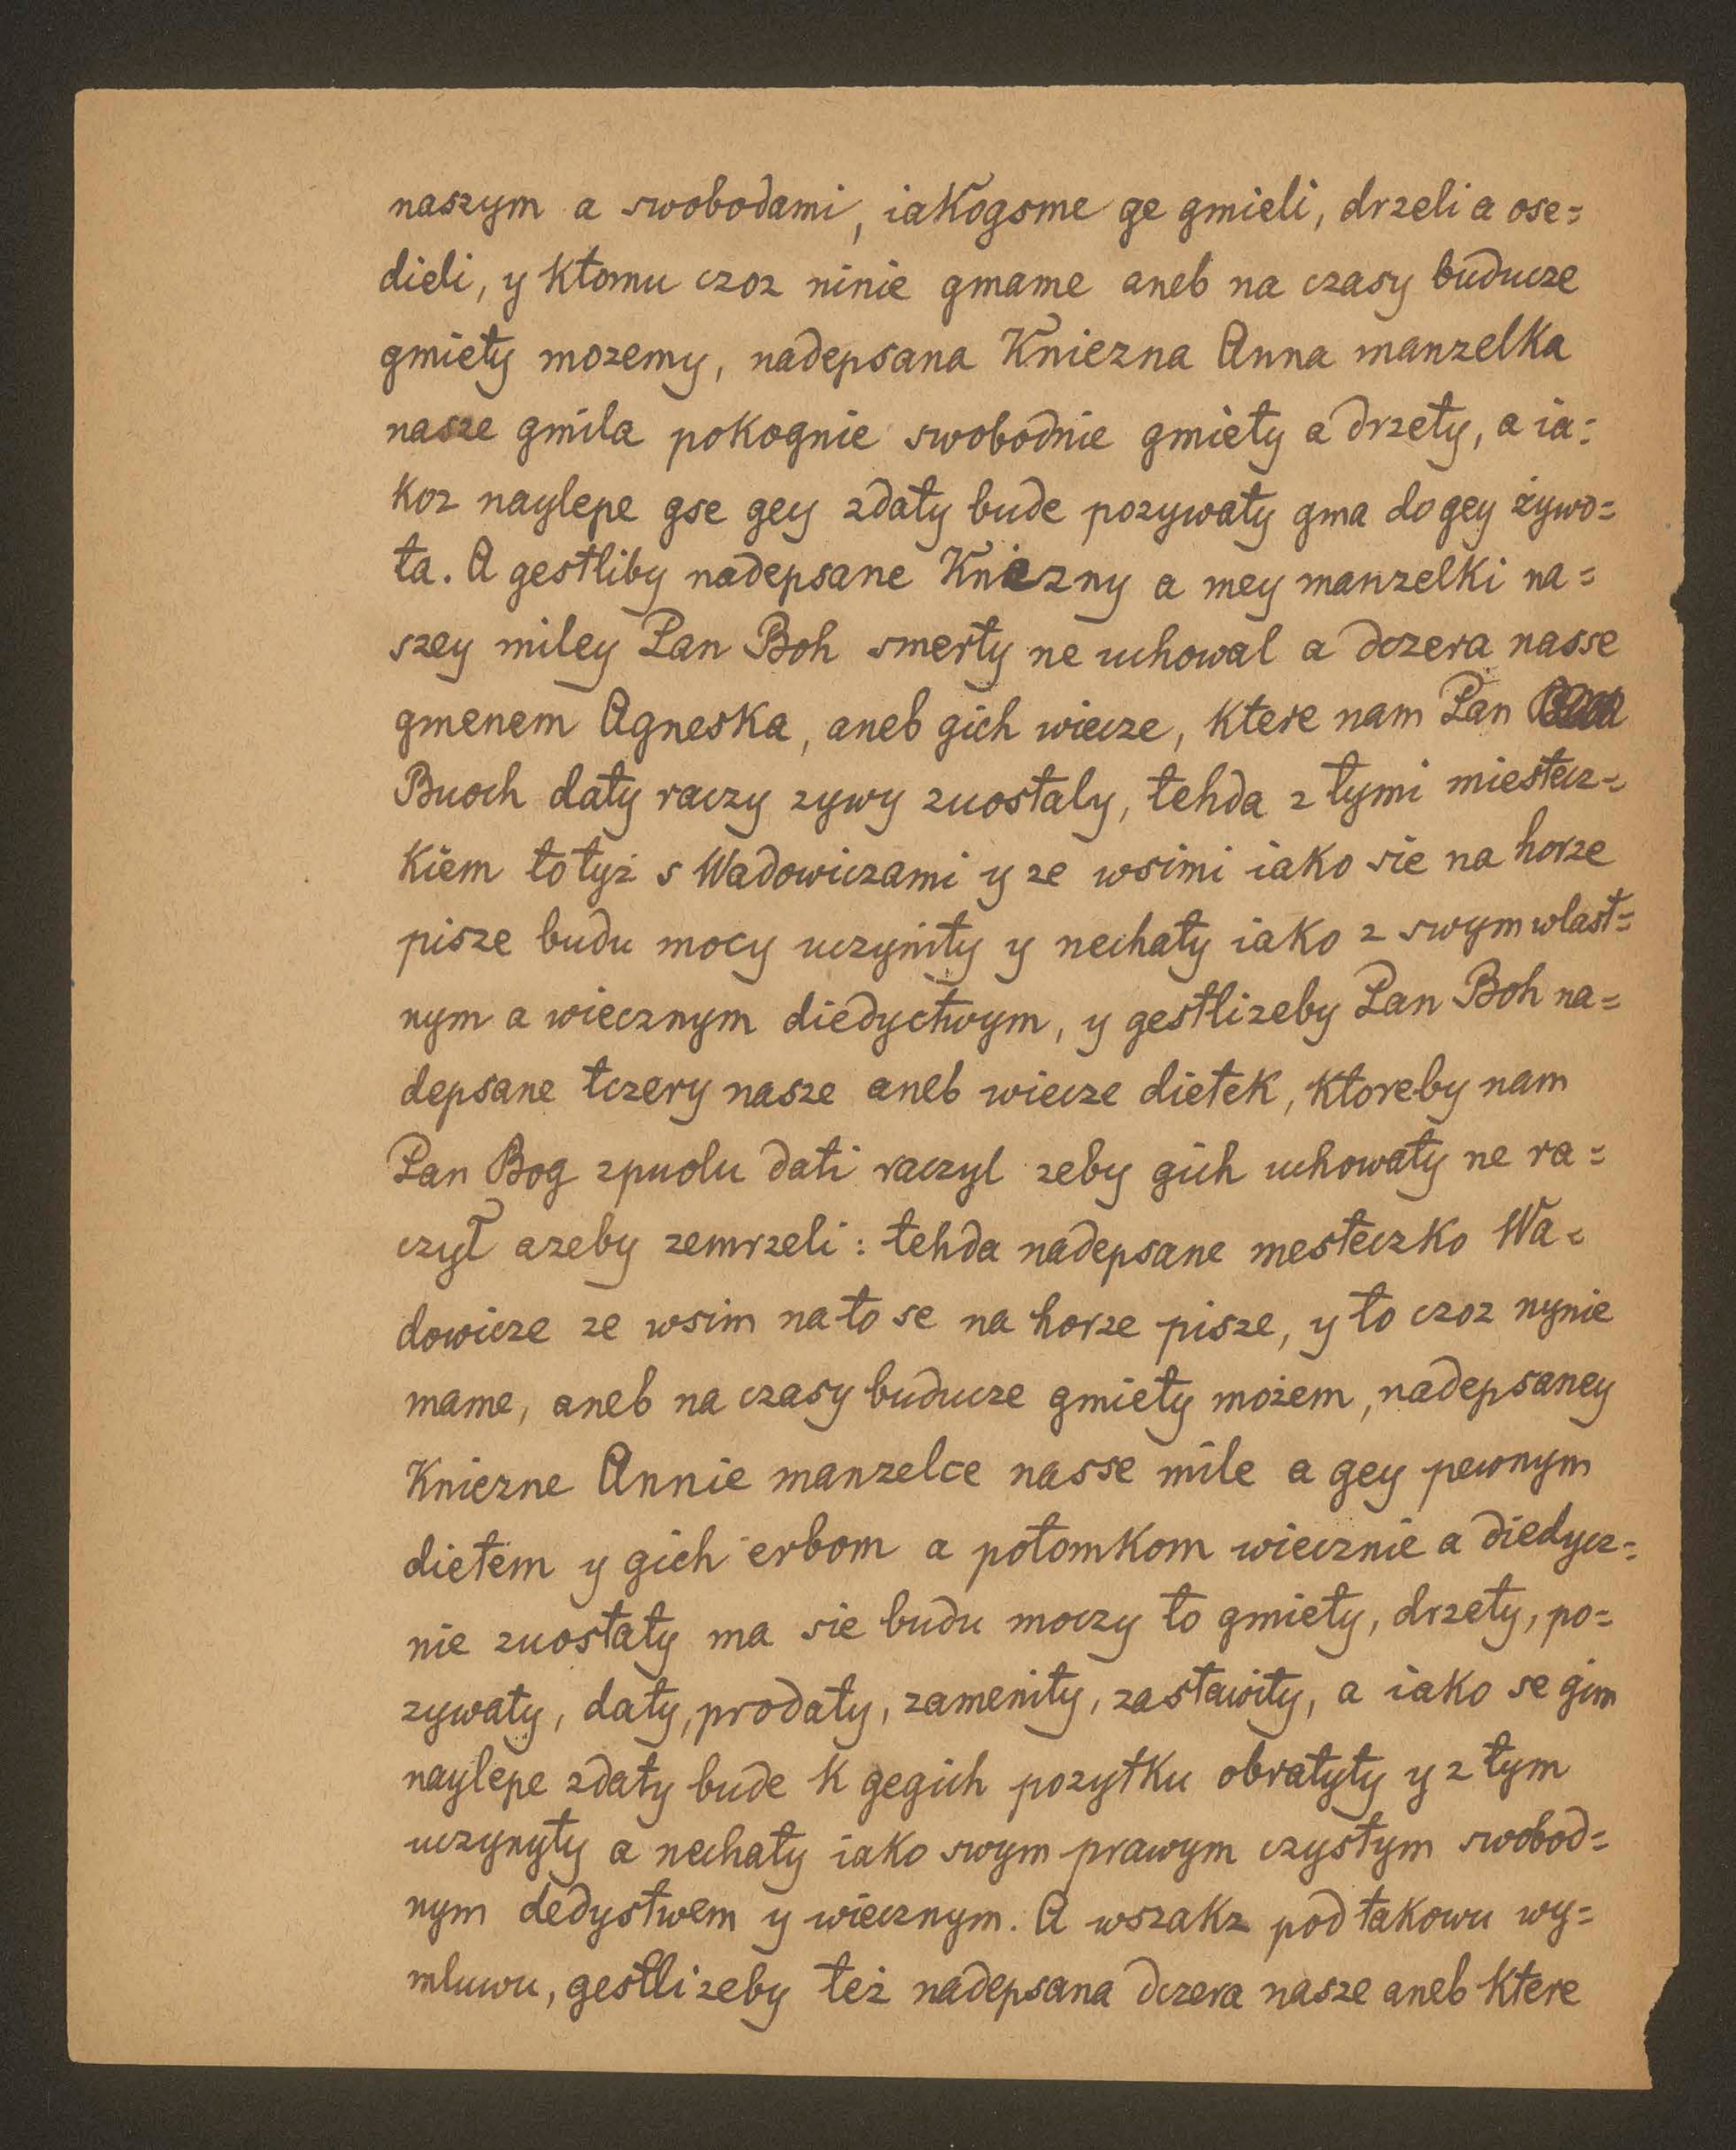 naszym a swobodami, iakogsme ge gmieli, drzeli a ose=
dieli, y ktomu czoz ninie gmame aneb na czasy buducze
gmiety mozemy, nadepsana Kniezna Anna manzelka
nasze gmila pokognie swobodnie gmiety a drzety, a ia=
koz naylepe gse gey zdaty bude pozywaty gma do gey żywo=
ta. A gestliby nadepsane Kniezny a mey manzelki na=
szey miley Pan Boh smerty ne uchowal a dczera nasse
gmenem Agneska, aneb gich wiecze, ktere nam Pan
Buoch daty raczy zywy zuostaly, tehda z tymi miestecz=
kiem to tyż s Wadowiczami y ze wsimi iako sie na horze
pisze budu mocy uczynity y nechaty iako z swym wlast=
nym a wiecznym diedyctwym, y gestlizeby Pan Boh na=
depsane tczery nasze aneb wiecze dietek, ktoreby nam
Pan Bog zpuolu dati raczyl zeby gich uchowaty ne ra=
czył azeby zemrzeli: tehda nadepsane mesteczko Wa=
dowicze ze wsim nato se na horze pisze, y to czoz nynie
mame, aneb na czasy buducze gmiety możem, nadepsaney
Kniezne Annie manzelce nasse mile a gey pewnym
dietem y gich erbom a potomkom wiecznie a diedycz=
nie zuostaty ma sie budu moczy to gmiety, drzety, po=
zywaty, daty, prodaty, zamenity, zastawity, a iako se gim
naylepe zdaty bude k gegich pozytku obratyty y z tym
uczynyty a nechaty iako swym prawym czystym swobod=
nym dedystwem y wiecznym. A wszakz pod takowu wy=
mluwu, gestlizeby też nadepsana dczera nasze aneb ktere